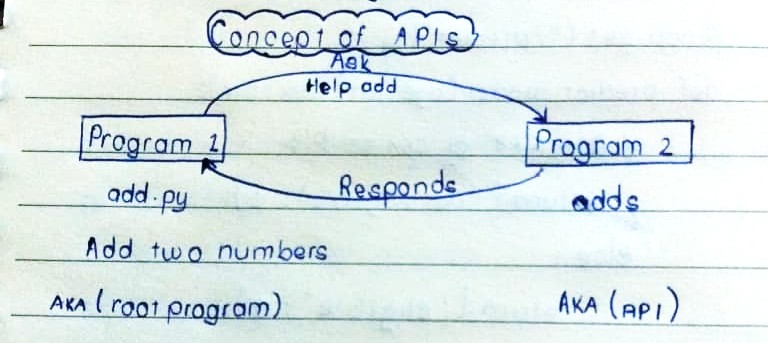 Concept of APIs
Ask
Help add
Program 1
Program 2
Responds
add.py
adds
Add two numbers
AKA (root program)
AKA (API)